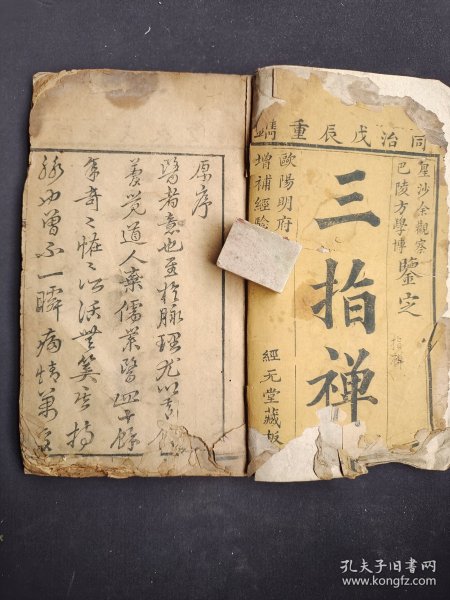 同治戊辰重鐫
星沙余觀察
巴陵方學博
鑒定
三指禪
歐陽明府
增補經驗
經元堂藏板
原序
醫者意也至於脉理尤以意
夢覺道人棄儒業醫四十餘
年奇々怪々活無算其持
脉也曾不一瞬病情萬
孔夫子旧书网
www.kongfz.com